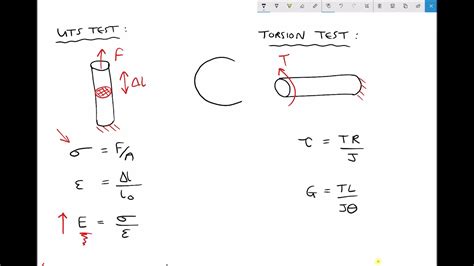 UTS TEST :
F
Δl
σ = F/A
ε = Δl/l₀
E = σ/ε
TORSION TEST :
T
τ = TR/J
G = TL/Jθ